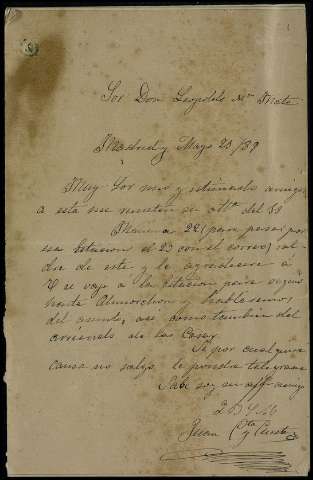 Sor Don Leopoldo Mn Mata
Madrid y Mayo 20/89
Muy Sor mio y estimado amigo
a esta me remiten su att.ª del 18
Mañana 22 (para pasar por
esa Estacion el 23 con el correo) sal-
dre de este y le agradecere á
V se vaya a la Estacion para
hasta Almorchon y hablaremos
del asunto, asi como tambien del
arriendo de las Casas
Si por cualquiera
causa no salgo, le pondre telegrama
Sabe soy su aff.º amigo
Q B S M
Juan